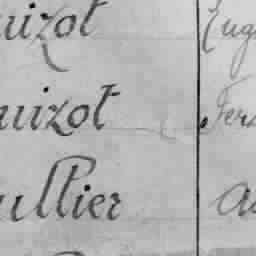 uizot Eug
uizot Fer
ullier